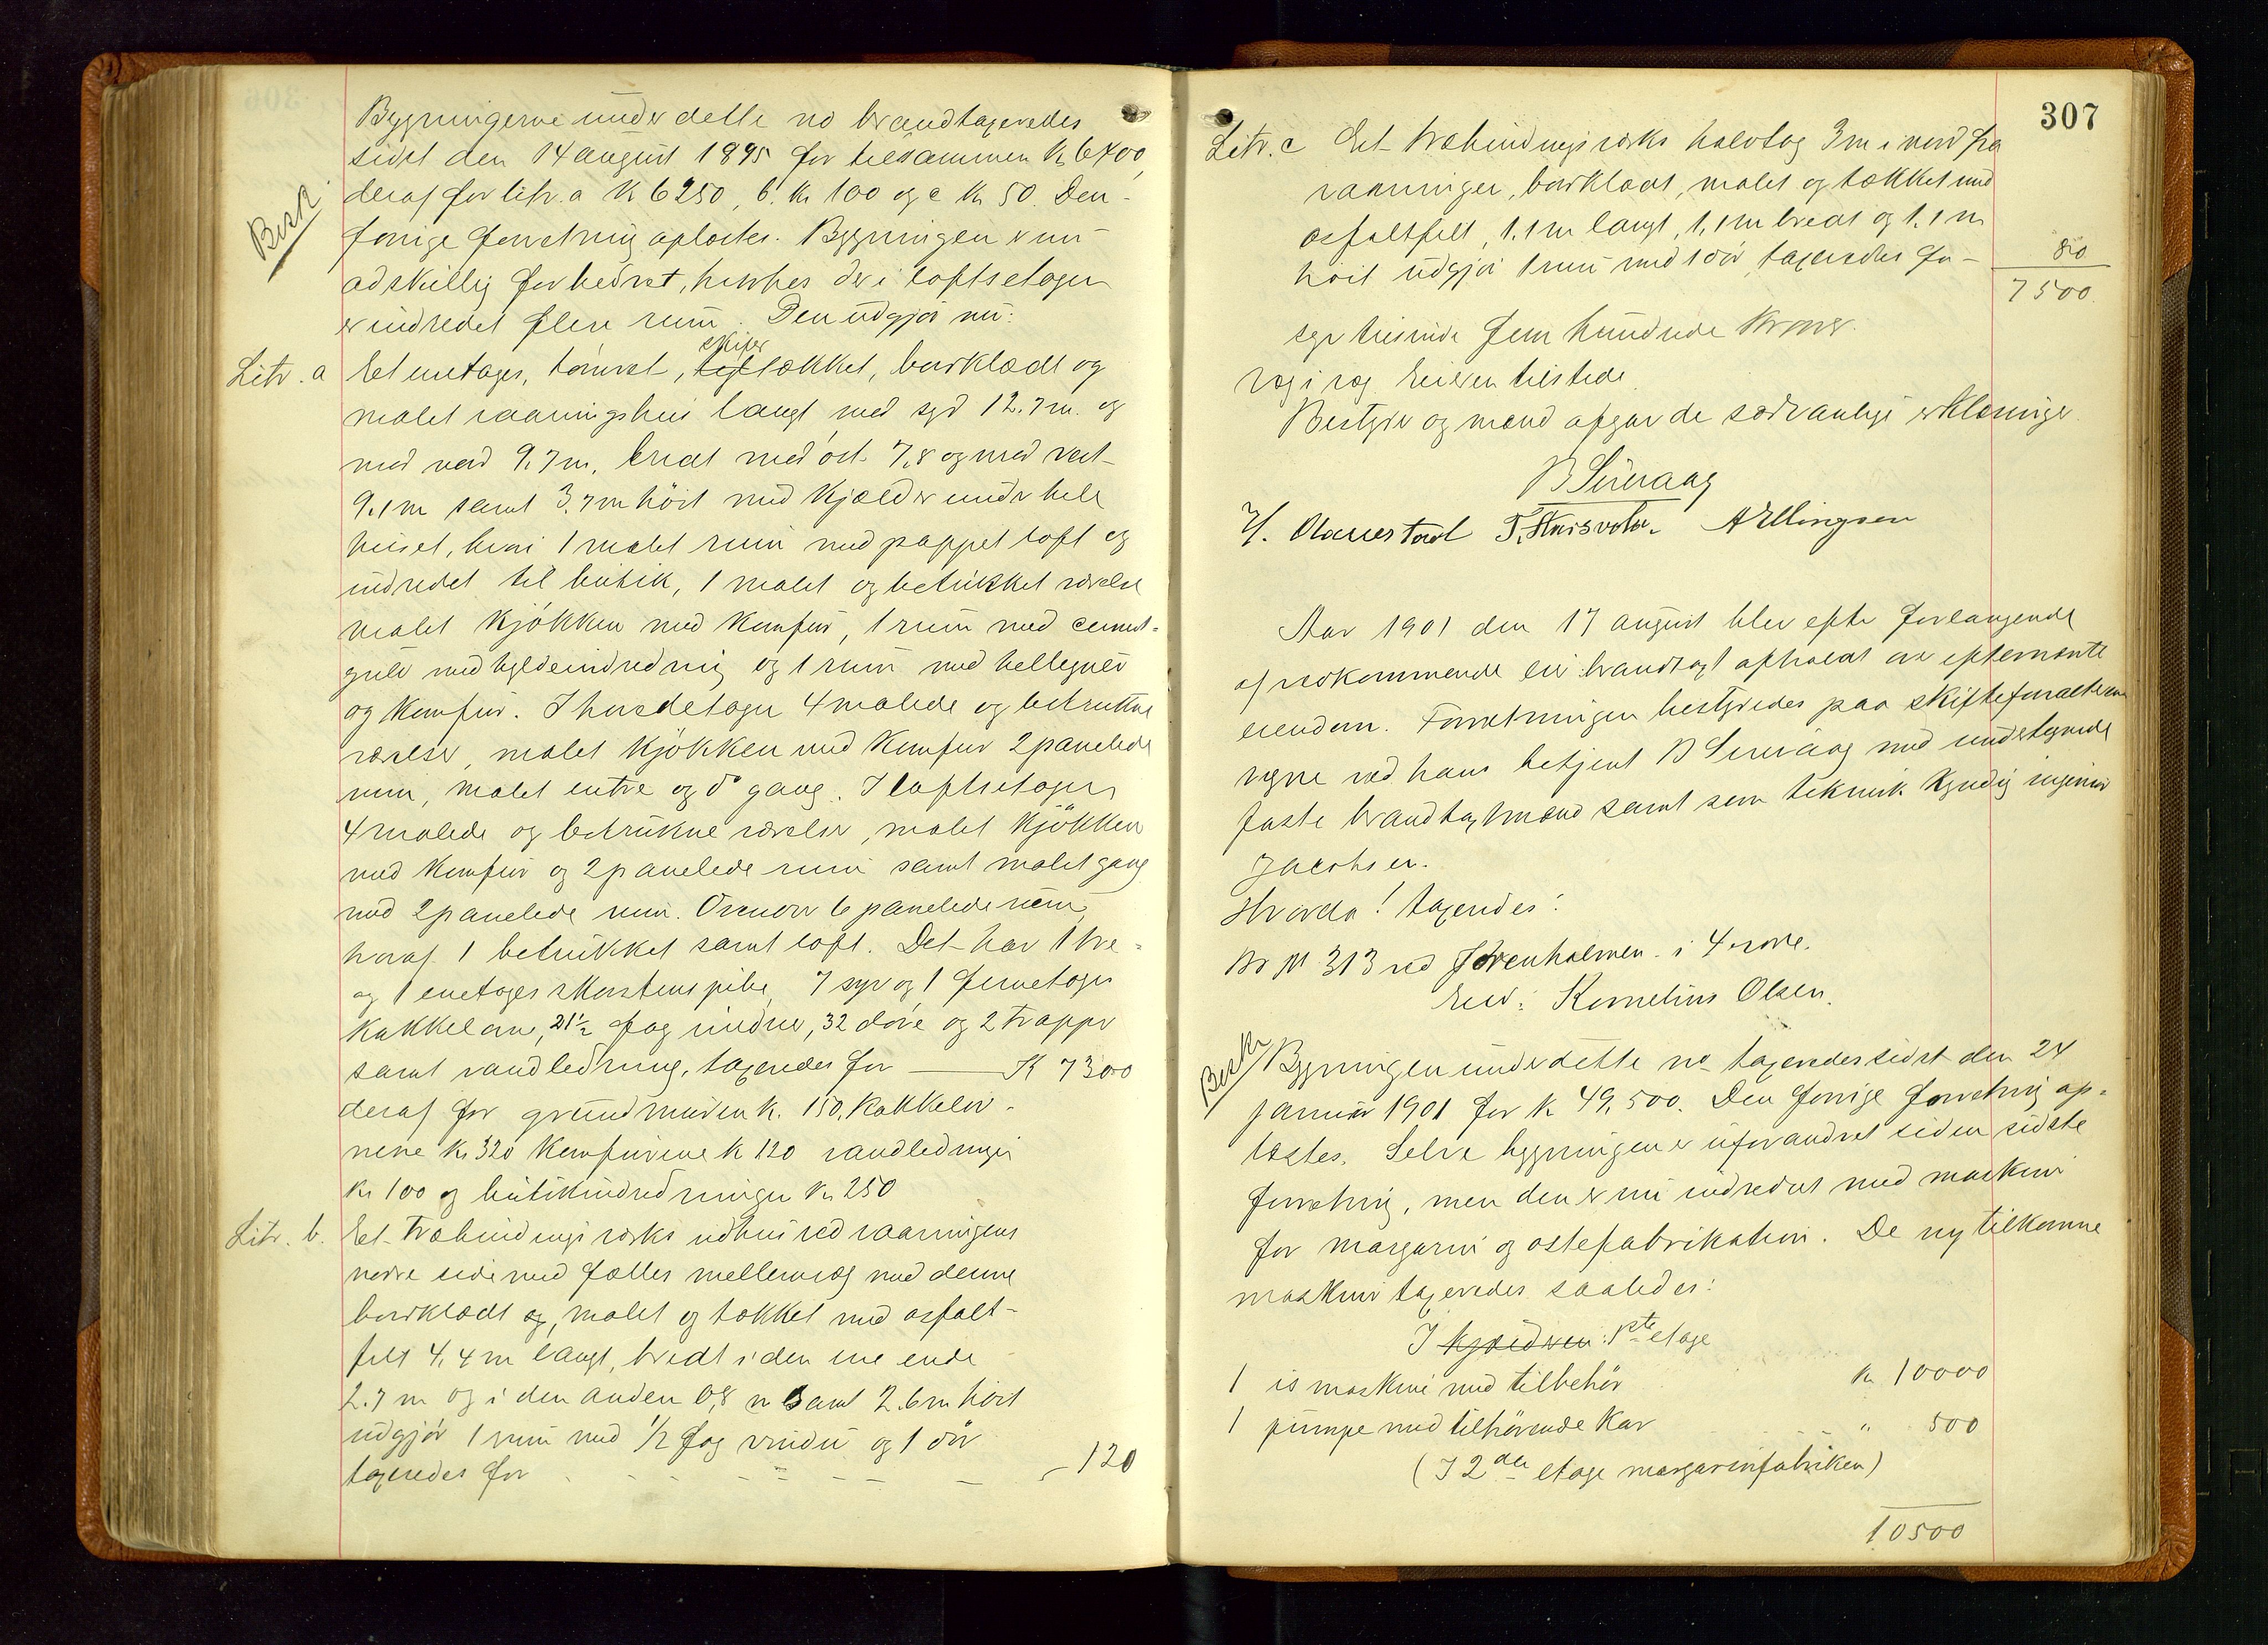 Bygningerne under dette no brandtaxeredes
sidst den 14 august 1895 for tilsammen K 6400,
Besk.
deraf for litr. a K 6250, b. K 100 og c K 50. Den
forrige forretning oplæstes. Bygningen er nu
adskillig forbedret, hvorhos der i loftsetagen
er indredet flere rum. Den udgjør nu:
Litr. a Et enetages, tømret, tegl skifertækket, bordklædt og
malet vaaningshus langt med syd 12.7 m. og
med nord 9.7 m, bredt med øst 7,8 og med vest
9.1 m samt 3.7 m høit med kjælder under hele
huset, hvori 1 malet rum med pappet loft og
indredet til butik, 1 malet og betrukket værelse
malet kjøkken med komfur, 1 rum med cement-
gulv med hyldeindredning og 1 rum med hellegulv
og komfur. I hovedetagen 4 malede og betrukne
værelser, malet kjøkken med komfur 2 panelede
rum, malet entre og do gang. I loftsetagen
4 malede og betrukne værelser, malet kjøkken
med komfur og 2 panelede rum samt malet gang
med 2 panelede rum. Ovenover 6 panelede rum,
hvoraf 1 betrukket samt loft. Det har 1 tre-
og 1 enetages skorstenspibe, 7 syv og 1 femetages
kakkelovne, 21 1/2 fag vinduer, 32 døre og 2 trapper
samt vandledning, taxeredes for K 7300
deraf for grundmuren K. 150, kakkelov-
nene Kr 320 komfurene K 120 vandledningen
Kr 100 og butikindredningen Kr 250
Litr. b. Et træbindingsværks udhus ved vaaningens
nordre side med fælles mellemvæg med denne
bordklædt og, malet og tækket med asfalt-
filt 4,4 m langt, bredt i den ene ende
2.7 m og i den anden 0,8 m samt 2.6 m høit
udgjør 1 rum med 1/2 fag vindu og 1 dør
taxeredes for - 120
307
Litr. c Et træbindingsværks halvtag 3 m i nord fra
vaaningen, bordklædt, malet og tækket med
asfaltfilt, 1.1 m langt, 1,1 m bredt og 1.1 m
høit udgjør 1 rum med 1 dør, taxeredes for 80
7500.
syv tusinde fem hundrede kroner.
Eieren tilstede.
Bestyrer og mænd afgav de sædvanlige erklæringer.
B Sirevaag
Olavestad A Ellingsen
Aar 1901 den 17 august blev efter forlangende
af vedkommende eier brandtaxt afholdt over efternævnte
eiendom. Forretningen bestyredes paa skifteforvalterens
vegne ved hans betjent B Sirevaag med undertegnede
faste brandtaxtmænd samt som teknisk kyndig ingeniør
Jacobsen.
Hvorda! taxeredes:
Br № 313 ved Jorenholmen i 4 rode.
Eier: Kornelius Olsen.
Beskr
Bygningen under dette no taxeredes sidst den 24
januar 1901 for K 49,500. Den forrige forretning op-
læstes. Selve bygningen er uforandret siden sidste
forretning, men den er nu indredet med maskiner
for margarin og ostefabrikation. De ny tilkomne
maskiner taxeredes saaledes:
I kjælderen: 1ste etage
1 is maskine med tilbehør Kr 10000
1 pumpe med tilhørende kar " 500
(I 2den etage margarinfabriken)
10500